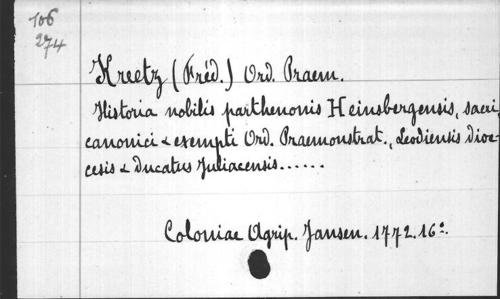 106
274
Kreetz (Fréd.) Ord. Praem.
Historia nobilis parthenonis Heinsbergensis, sacri,
canonici & exempti Ord. Praemonstrat., Leodiensis dioe-
cesis & Ducatus Juliacensis......
Coloniae Agrip. Jansen. 1772. 16°.